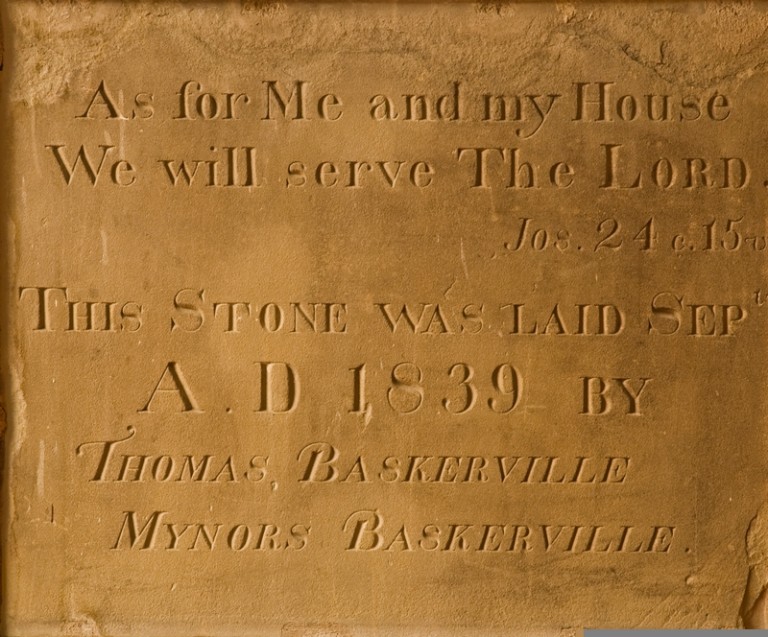 As for Me and my House
We will serve The LORD.
Jos. 24 c. 15 v
THIS STONE WAS LAID SEPt
A. D 1839 BY
THOMAS, BASKERVILLE
MYNORS BASKERVILLE.